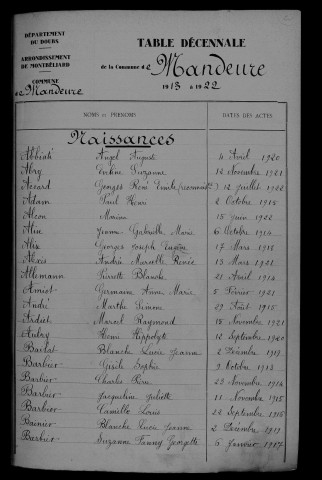 DÉPARTEMENT
DU DOUBS
ARRONDISSEMENT
DE MONTBÉLIARD
COMMUNE
de Mandeure
TABLE DÉCENNALE
de la Commune de Mandeure
1913 à 1922
NOMS et PRÉNOMS DATES DES ACTES
Naissances
Abbiati Angel Auguste 4 Avril 1920
Abry Eveline Suzanne 12 Novembre 1921
Accard Georges René Emile (reconnait) 12 juillet 1922
Adam Paul Henri 2 Octobre 1915
Alcon Maxime 15 juin 1922
Alix Jeanne Gabrielle Marie 6 Octobre 1914
Alix Georges Joseph Eugène 17 Mars 1918
Alexis André Marcelle Renée 13 Mars 1921
Allemann Pierrette Blanche 21 Avril 1914
Amiot Germaine Anne Marie 5 Février 1921
André Marthe Simone 29 Août 1915
Ardiet Marcel Raymond 18 Novembre 1921
Aubry Henri Hippolyte 12 Septembre 1920
Barbat Blanche Lucie Jeanne 2 Décembre 1919
Barbier Gisèle Sophie 9 Octobre 1913
Barbier Charles René 23 Novembre 1914
Barbier Jacqueline Juliette 11 Novembre 1915
Barbier Camille Louis 24 Septembre 1916
Bainier Blanche Lucie Jeanne 2 Décembre 1919
Barbier Suzanne Fanny Georgette 6 Janvier 1917